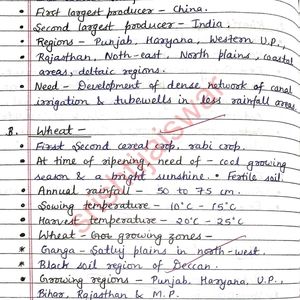 First largest producer - China.
Second largest producer - India.
Regions - Punjab, Haryana, Western U.P.,
Rajasthan, Noth-east, North plains, coastal
areas, deltaic regions.
Need - Development of dense network of canal
irrigation & tubewells in less rainfall areas
Wheat -
First Second cereal crop, rabi crop.
At time of ripening, need of - cool growing
season & a bright sunshine. • Fertile soil.
Annual rainfall - 50 to 75 cm.
Sowing temperature - 10°C - 15°C
Harvest temperature - 20°C - 25°C
Wheat - growing zones -
* Ganga - Satluj plains in north-west.
* Black soil region of Deccan.
Growing regions - Punjab, Haryana, U.P.,
Bihar, Rajasthan & M.P.